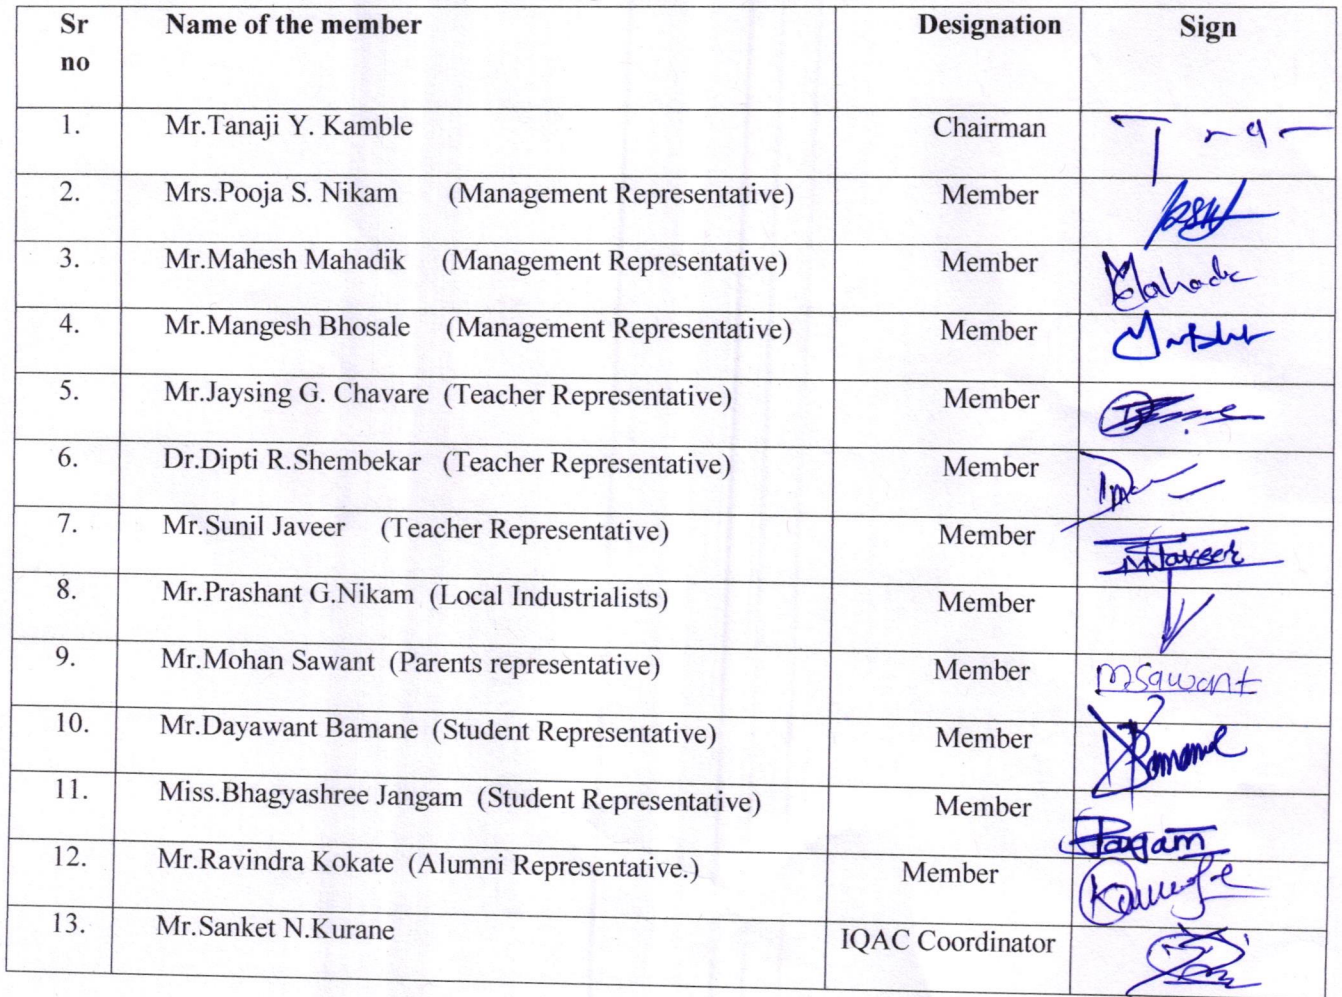 Sr no Name of the member Designation Sign
1. Mr.Tanaji Y. Kamble Chairman
2. Mrs.Pooja S. Nikam (Management Representative) Member
3. Mr.Mahesh Mahadik (Management Representative) Member
4. Mr.Mangesh Bhosale (Management Representative) Member
5. Mr.Jaysing G. Chavare (Teacher Representative) Member
6. Dr.Dipti R.Shembekar (Teacher Representative) Member
7. Mr.Sunil Javeer (Teacher Representative) Member
8. Mr.Prashant G.Nikam (Local Industrialists) Member
9. Mr.Mohan Sawant (Parents representative) Member msawant
10. Mr.Dayawant Bamane (Student Representative) Member
11. Miss.Bhagyashree Jangam (Student Representative) Member
12. Mr.Ravindra Kokate (Alumni Representative.) Member
13. Mr.Sanket N.Kurane IQAC Coordinator